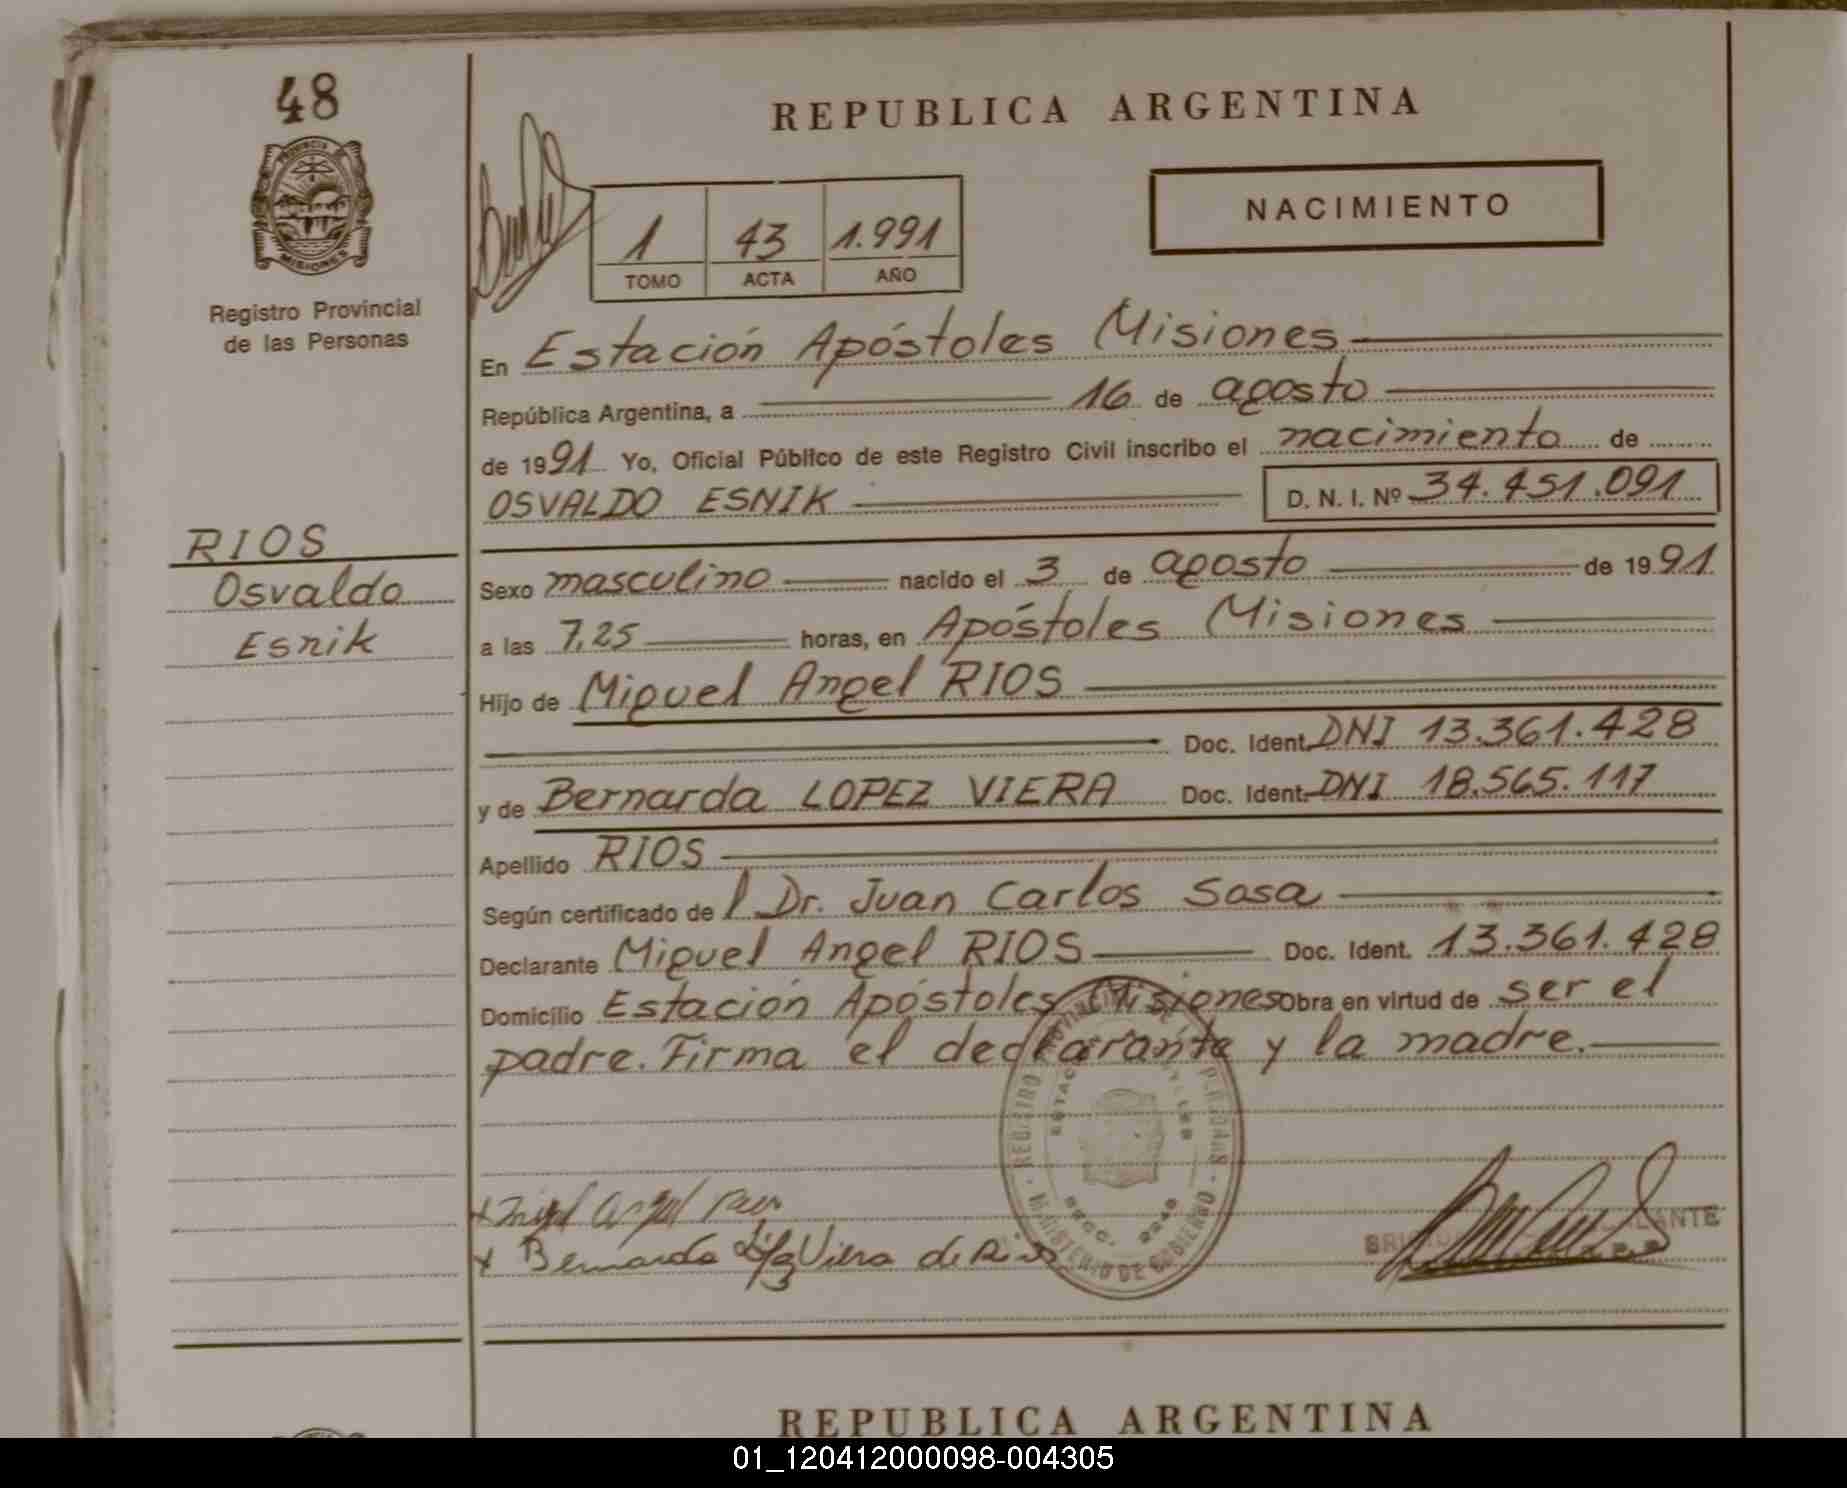 48
PROVINCIA DE
MISIONES
Registro Provincial
de las Personas
RIOS
Osvaldo
Esnik
REPUBLICA ARGENTINA
NACIMIENTO
1 43 1.991
TOMO ACTA AÑO
En Estación Apóstoles Misiones
República Argentina, a 16 de agosto
de 1991 Yo, Oficial Público de este Registro Civil inscribo el nacimiento de
OSVALDO ESNIK D. N. I. Nº 34.451.091
Sexo masculino nacido el 3 de agosto de 1991
a las 7,25 horas, en Apóstoles Misiones
Hijo de Miguel Angel RIOS
Doc. Ident. DNI 13.361.428
y de Bernarda LOPEZ VIERA Doc. Ident. DNI 18.565.117
Apellido RIOS
Según certificado de l Dr. Juan Carlos Sosa
Declarante Miguel Angel RIOS Doc. Ident. 13.361.428
Domicilio Estación Apóstoles Misiones Obra en virtud de ser el
padre. Firma el declarante y la madre.
REGISTRO PROVINCIAL DE LAS PERSONAS - MINISTERIO DE GOBIERNO
SECC. 2248
x Miguel Angel Rios
x Bernarda López Viera de Rios
REPUBLICA ARGENTINA
01_120412000098-004305